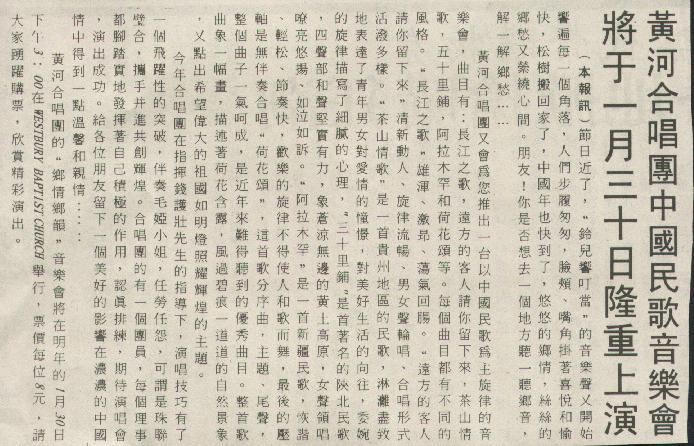 黃河合唱團中國民歌音樂會
將于一月三十日隆重上演
（本報訊）節日近了，“鈴兒響叮當”的音樂聲又開始
響遍每一個角落，人們步履匆匆，臉頰、嘴角掛著喜悅和愉
快，松樹搬回家了，中國年也快到了，悠悠的鄉情，絲絲的
鄉愁又縈繞心間。朋友！你是否想去一個地方聽一聽鄉音，
解一解鄉愁……
黃河合唱團又會爲您推出一台以中國民歌爲主旋律的音
樂會，曲目有：長江之歌，遠方的客人請你留下來，茶山情
歌，五十里鋪，阿拉木罕和荷花頌等。每個曲目都有不同的
風格。“長江之歌”雄渾、激昂、蕩氣回腸。“遠方的客人
請你留下來”清新動人、旋律流暢、男女聲輪唱、合唱形式
活潑多樣。“茶山情歌”是一首貴州地區的民歌，淋灕盡致
地表達了青年男女對愛情的憧憬，對美好生活的向往，委婉
的旋律描寫了細膩的心理，“三十里鋪”是首著名的陝北民歌
，四聲部和聲堅實有力，象蒼涼無邊的黃土高原，女聲領唱
嘹亮悠揚、如泣如訴。“阿拉木罕”是一首新疆民歌，恢諧
、輕松、節奏快，歡樂的旋律不得使人和歌而舞，最後的壓
軸是無伴奏合唱“荷花頌”，這首歌分序曲，主題、尾聲，
整個曲子一氣呵成，是近年來難得聽到的優秀曲目。整首歌
曲象一幅畫，描述著荷花含露，風過碧痕一道道的自然景象
，又點出希望偉大的祖國如明燈照耀輝煌的主題。
今年合唱團在指揮錢護壯先生的指導下，演唱技巧有了
一個飛躍性的突破，伴奏毛婭小姐，任勞任怨，可謂是珠聯
璧合，攜手并進共創輝煌。合唱團的有一個團員，每個理事
都腳踏實地發揮著自己積極的作用，認眞排練，期待演唱會
，演出成功。給各位朋友留下一個美好的影響在濃濃的中國
情中得到一點溫馨和親情……
黃河合唱團的“鄉情鄉韻”音樂會將在明年的1月30日
下午3：00在WESTBURY BAPTIST CHURCH舉行，票價每位8元，請
大家踴躍購票，欣賞精彩演出。